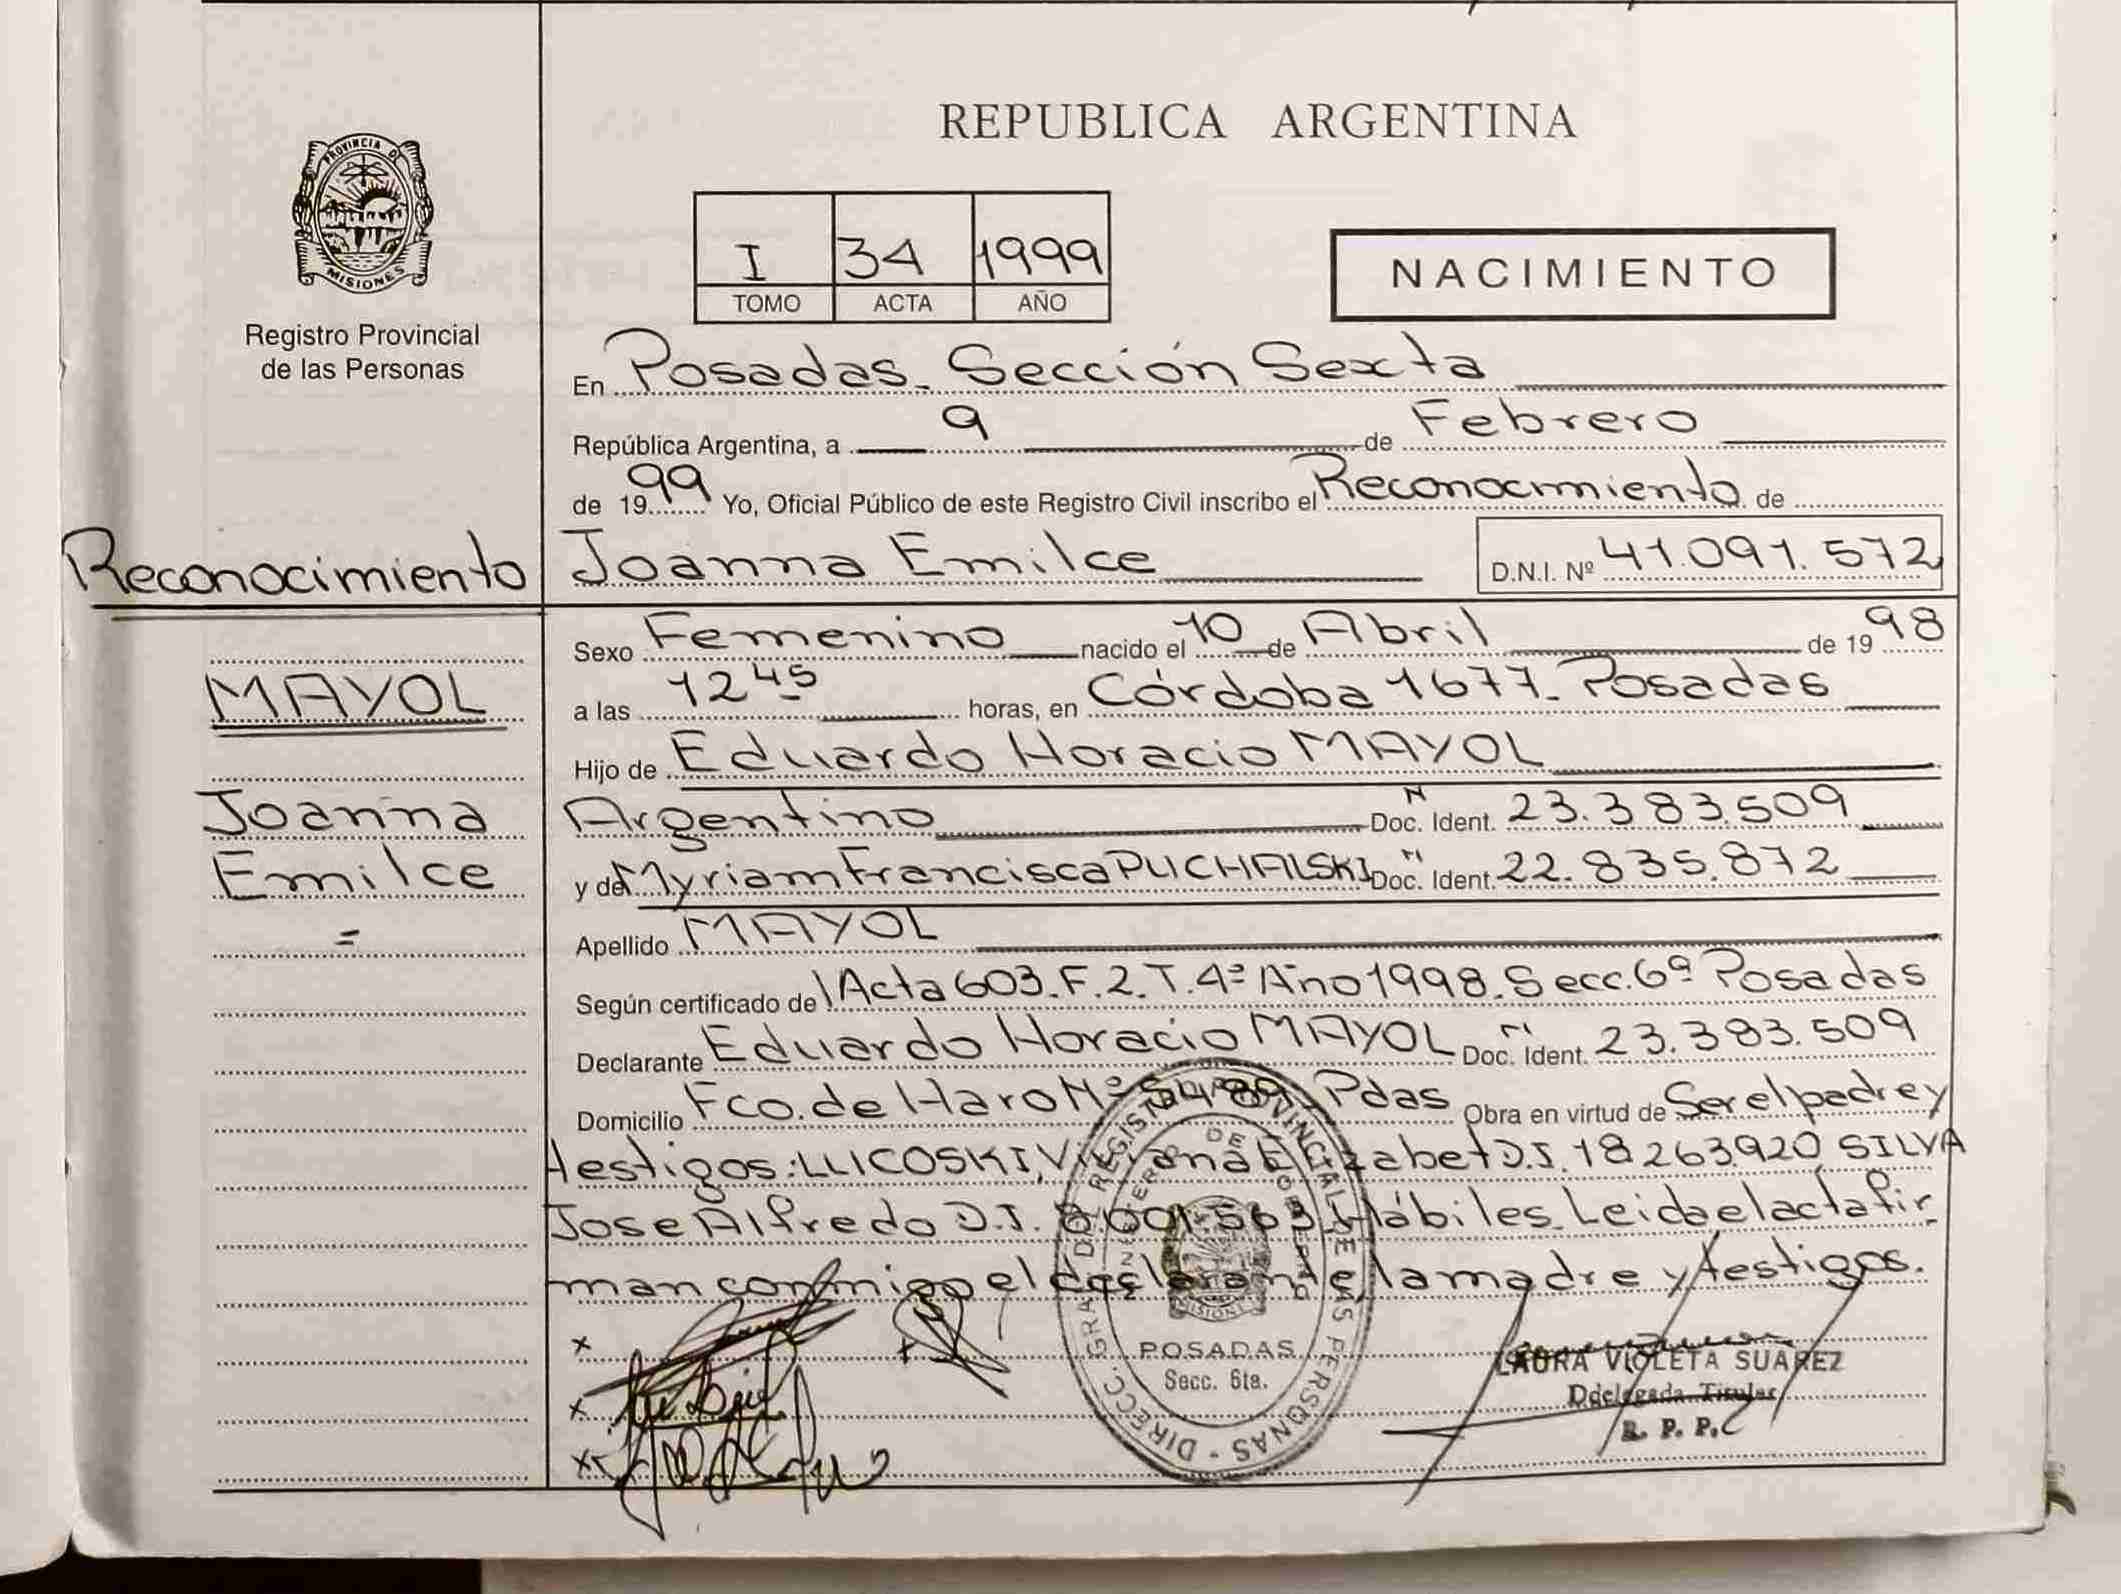 REPUBLICA ARGENTINA
PROVINCIA DE
MISIONES
Registro Provincial
de las Personas
I 34 1999
TOMO ACTA AÑO
NACIMIENTO
En Posadas. Sección Sexta
República Argentina, a 9 de Febrero
de 1999 Yo, Oficial Público de este Registro Civil inscribo el Reconocimiento de
Reconocimiento
Joanna Emilce D.N.I. Nº 41.091.572
Sexo Femenino nacido el 10 de Abril de 1998
MAYOL
a las 12 45 horas, en Córdoba 1677. Posadas
Hijo de Eduardo Horacio MAYOL
Joanna
Argentino Doc. Ident. 23.383.509
Emilce
y de Myriam Francisca PUCHALSKI Doc. Ident. 22.835.872
=
Apellido MAYOL
Según certificado de Acta 603. F. 2. T. 4º Año 1998. Secc. 6ª Posadas
Declarante Eduardo Horacio MAYOL Doc. Ident. 23.383.509
Domicilio Fco. de Haro Nº 5489. Pdas Obra en virtud de Ser el padre y
testigos: LUCOSKI, Viviana Elizabet D.I. 18263.920, SILVA
Jose Alfredo D.I. 8.001.563 Hábiles. Leida el acta fir
man conmigo el declarante, la madre y testigos.
DIRECC. GRAL. DEL REGISTRO PROVINCIAL DE LAS PERSONAS
MISIONES
POSADAS
Secc. 6ta.
LAURA VIOLETA SUAREZ
Delegada Titular
R. P. P.